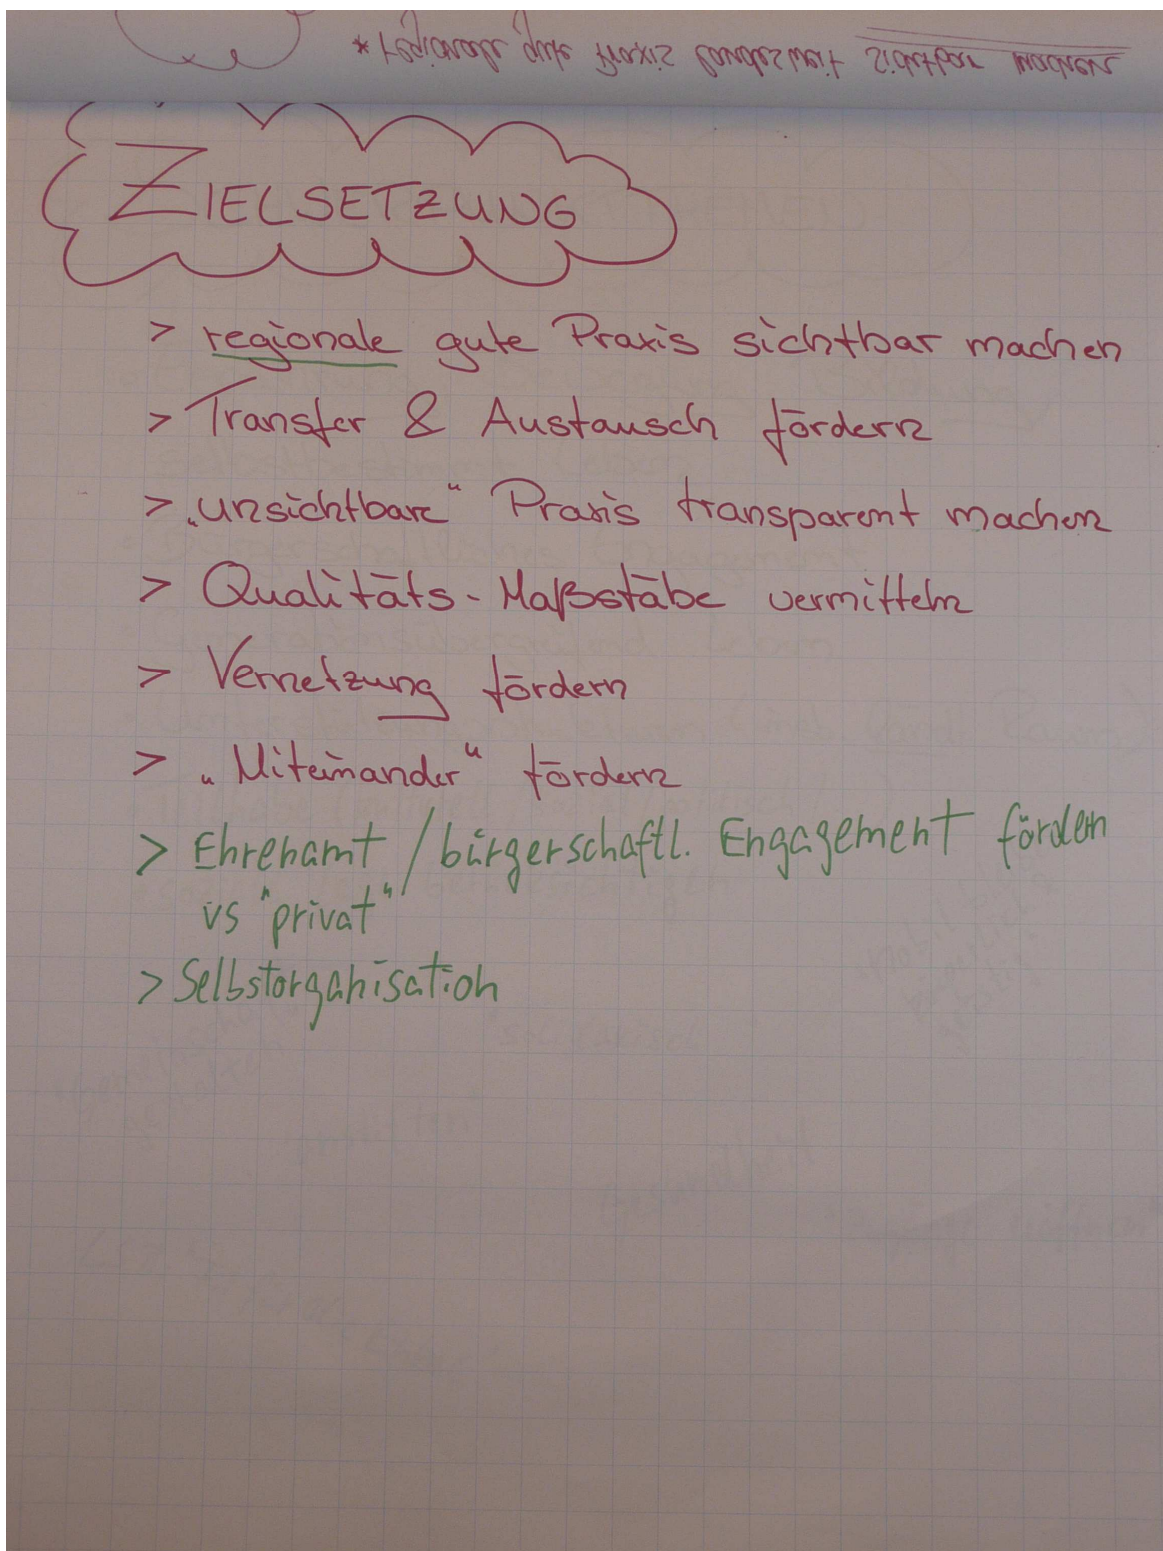 * regionale gute Praxis landesweit sichtbar machen
ZIELSETZUNG
> regionale gute Praxis sichtbar machen
> Transfer & Austausch fördern
> „unsichtbare“ Praxis transparent machen
> Qualitäts-Maßstäbe vermitteln
> Vernetzung fördern
> „Miteinander“ fördern
> Ehrenamt / bürgerschaftl. Engagement fördern
vs "privat"
> Selbstorganisation